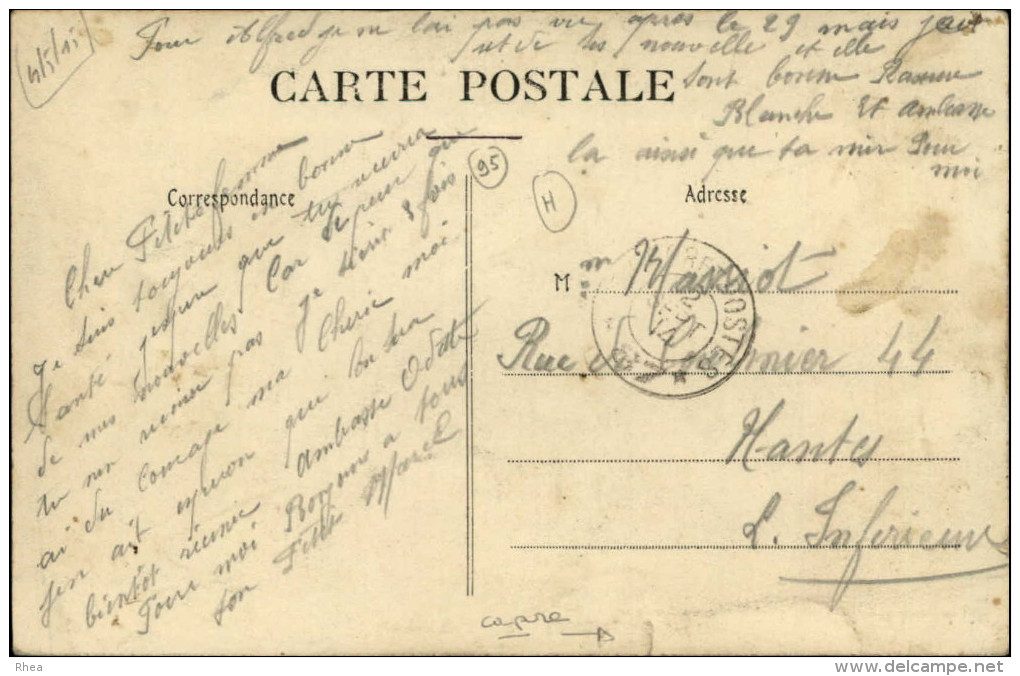 4/5/15
Pour Alfred je ne lai pas vu apres le 29 mais jai
ut de ses nouvelle et elle
sont bonne
Blanche Et ambrasse
la ainsi que ta mir Pour
moi
CARTE POSTALE
95
H
Correspondance
Adresse
Cher Petite femme
Je suis toujours en bonne
Santé jespere que tu
de mes nouvelles Car Je peur que
tu ne pas Je técris 3 fois
ai du Courage ma Cherie moi
jen ait que lon sera
bientôt réunie ambrasse Odette
Pour moi Bonjour a tous
ton Petit Marcel
M me
POSTES
Rue de 44
Nantes
L. Inferieure
capre
Rhea
www.delcampe.net